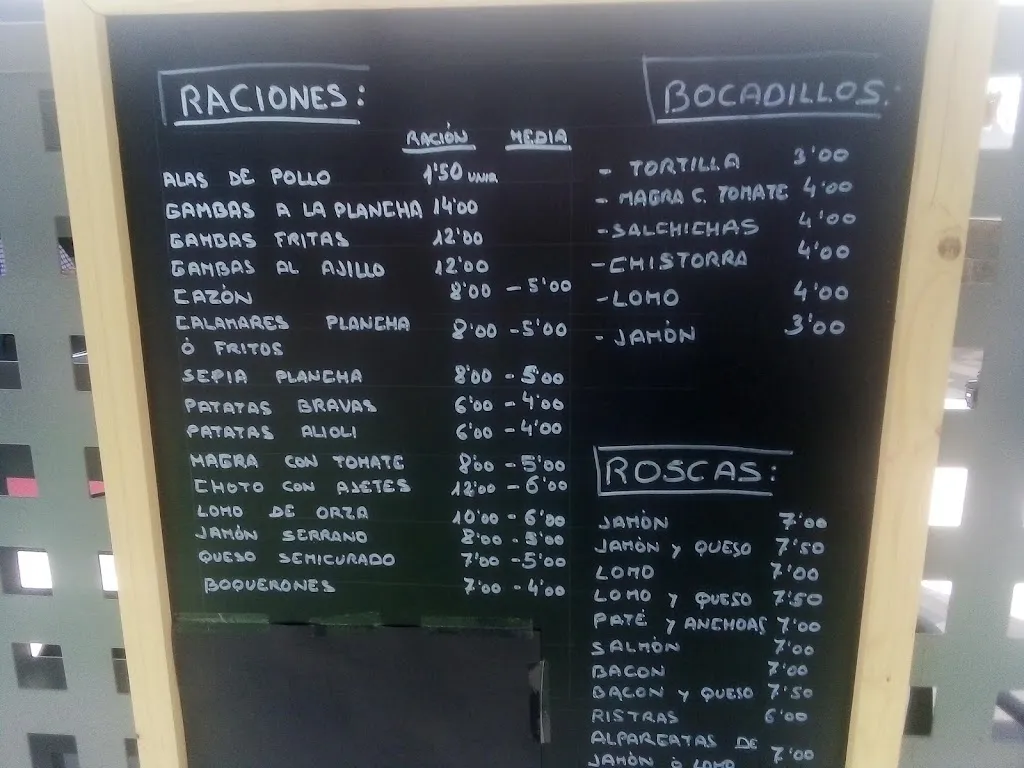 RACIONES:
RACIÓN MEDIA
ALAS DE POLLO 1'50 UNID.
GAMBAS A LA PLANCHA 14'00
GAMBAS FRITAS 12'00
GAMBAS AL AJILLO 12'00
CAZÓN 8'00 - 5'00
CALAMARES PLANCHA 8'00 - 5'00
Ó FRITOS
SEPIA PLANCHA 8'00 - 5'00
PATATAS BRAVAS 6'00 - 4'00
PATATAS ALIOLI 6'00 - 4'00
MAGRA CON TOMATE 8'00 - 5'00
CHOTO CON AJETES 12'00 - 6'00
LOMO DE ORZA 10'00 - 6'00
JAMÓN SERRANO 8'00 - 5'00
QUESO SEMICURADO 7'00 - 5'00
BOQUERONES 7'00 - 4'00
BOCADILLOS:
- TORTILLA 3'00
- MAGRA C. TOMATE 4'00
- SALCHICHAS 4'00
- CHISTORRA 4'00
- LOMO 4'00
- JAMÓN 3'00
ROSCAS:
JAMÓN 7'00
JAMÓN Y QUESO 7'50
LOMO 7'00
LOMO Y QUESO 7'50
PATÉ Y ANCHOAS 7'00
SALMÓN 7'00
BACON 7'00
BACON Y QUESO 7'50
RISTRAS 6'00
ALPARGATAS DE
JAMÓN Ó LOMO 7'00